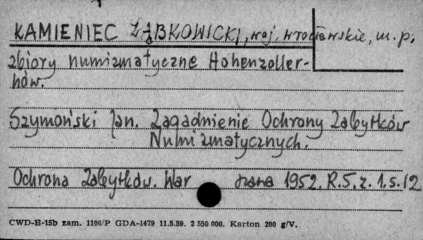 KAMIENIEC ZĄBKOWICKI, woj. wrocławskie, m.p.
zbiory numizmatyczne Hohenzoller-
nów.
Szymoński Jan. Zagadnienie Ochrony Zabytków
Numizmatycznych.
Ochrona Zabytków. War szawa 1952. R.5. z. 1. s. 12
CWD-H-15b zam. 1106/P GDA-1479 11.5.59. 2 550 000. Karton 200 g/V.